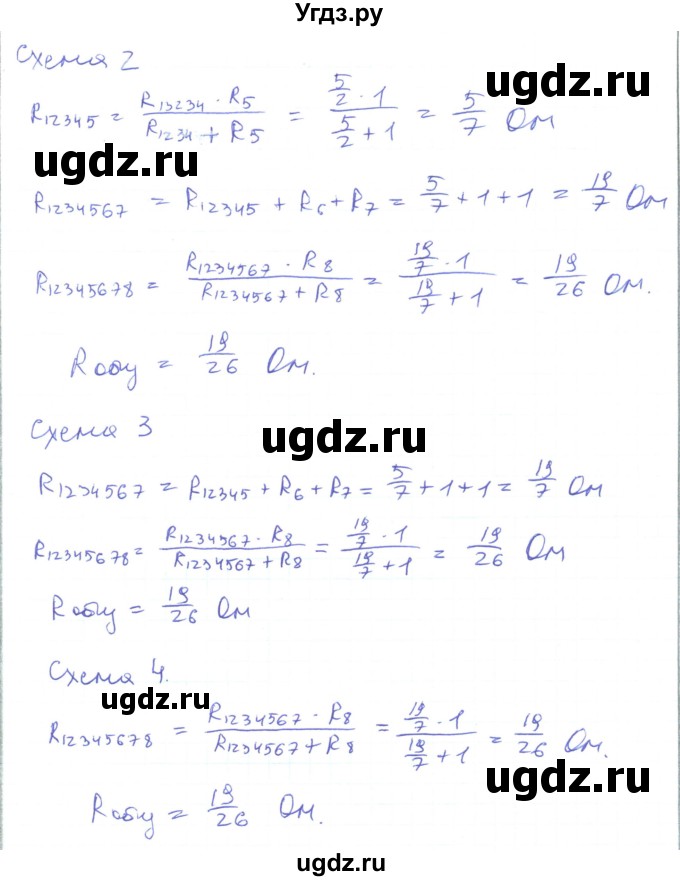 Угдз.ру
Схема 2
ugdz.ru
R₁₂₃₄₅ = (R₁₃₂₃₄ · R₅)/(R₁₂₃₄ + R₅) = (5/2 · 1)/(5/2 + 1) = 5/7 Ом
ugdz.ru
R₁₂₃₄₅₆₇ = R₁₂₃₄₅ + R₆ + R₇ = 5/7 + 1 + 1 = 19/7 Ом
R₁₂₃₄₅₆₇₈ = (R₁₂₃₄₅₆₇ · R₈)/(R₁₂₃₄₅₆₇ + R₈) = (19/7 · 1)/(19/7 + 1) = 19/26 Ом.
Rобщ = 19/26 Ом.
Схема 3
ugdz.ru
R₁₂₃₄₅₆₇ = R₁₂₃₄₅ + R₆ + R₇ = 5/7 + 1 + 1 = 19/7 Ом
R₁₂₃₄₅₆₇₈ = (R₁₂₃₄₅₆₇ · R₈)/(R₁₂₃₄₅₆₇ + R₈) = (19/7 · 1)/(19/7 + 1) = 19/26 Ом
Rобщ = 19/26 Ом
Схема 4.
ugdz.ru
R₁₂₃₄₅₆₇₈ = (R₁₂₃₄₅₆₇ · R₈)/(R₁₂₃₄₅₆₇ + R₈) = (19/7 · 1)/(19/7 + 1) = 19/26 Ом.
ugdz.ru
Rобщ = 19/26 Ом.
ugdz.ru